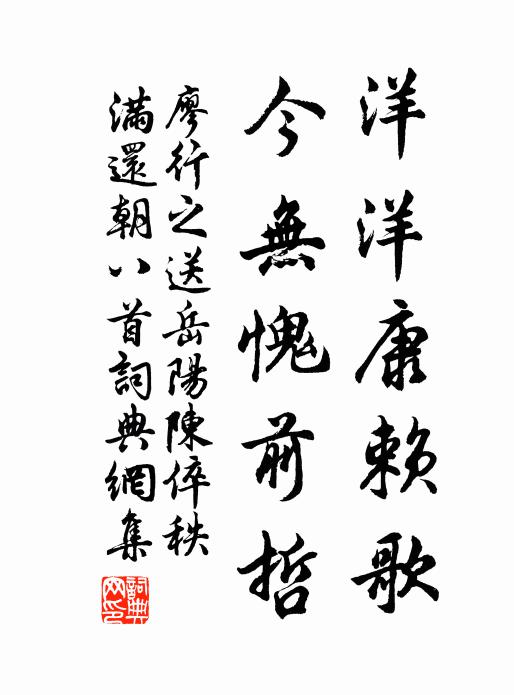 洋洋康賴歌
今無愧前哲
廖行之送岳陽陳倅秩
滿還朝八首詞典網集
詞典网印